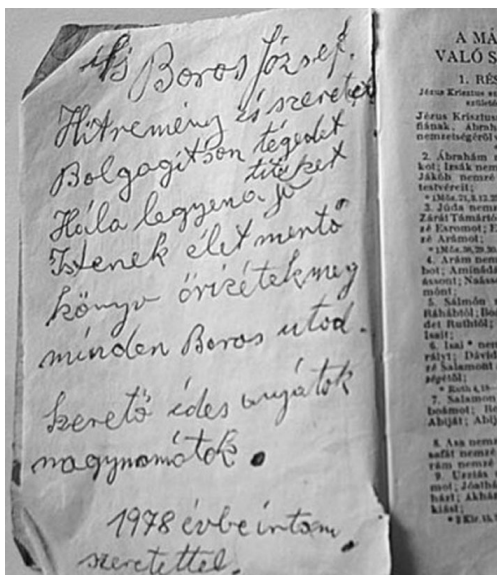 ifj Boros József.
Hit remény és szeretet
Bolgagitson tégedet
titeket
Hála legyen a jó
Istenek élet mentö
könyv örizétek meg
minden Boros utod.
szerető édes anyátok
nagymamátok.
1978 évbe irtam
szeretettel.
A MÁ
VALÓ S
1. RÉS
Jézus Krisztus
születé
Jézus Krisztus
fiának, Ábrah
nemzetségéről
2. Ábrahám
kot; Izsák nem
Jákób nemzé
testvéreit;
3. Júda nemz
Zárát Támártó
zé Esromot; E
zé Arámot;
4. Arám nem
bot; Aminádá
ássont; Naáss
mónt;
5. Sálmón
Ráhábtól; Bo
det Ruthtól;
Isait;
6. Isai nem
rályt; Dávid
zé Salamont
7. Salamon
boámot; Ro
Abiját; Abij
8. Asa nemz
safát nemzé
rám nemzé
9. Uzziás
mot; Jóathá
házt; Akház
kiást;